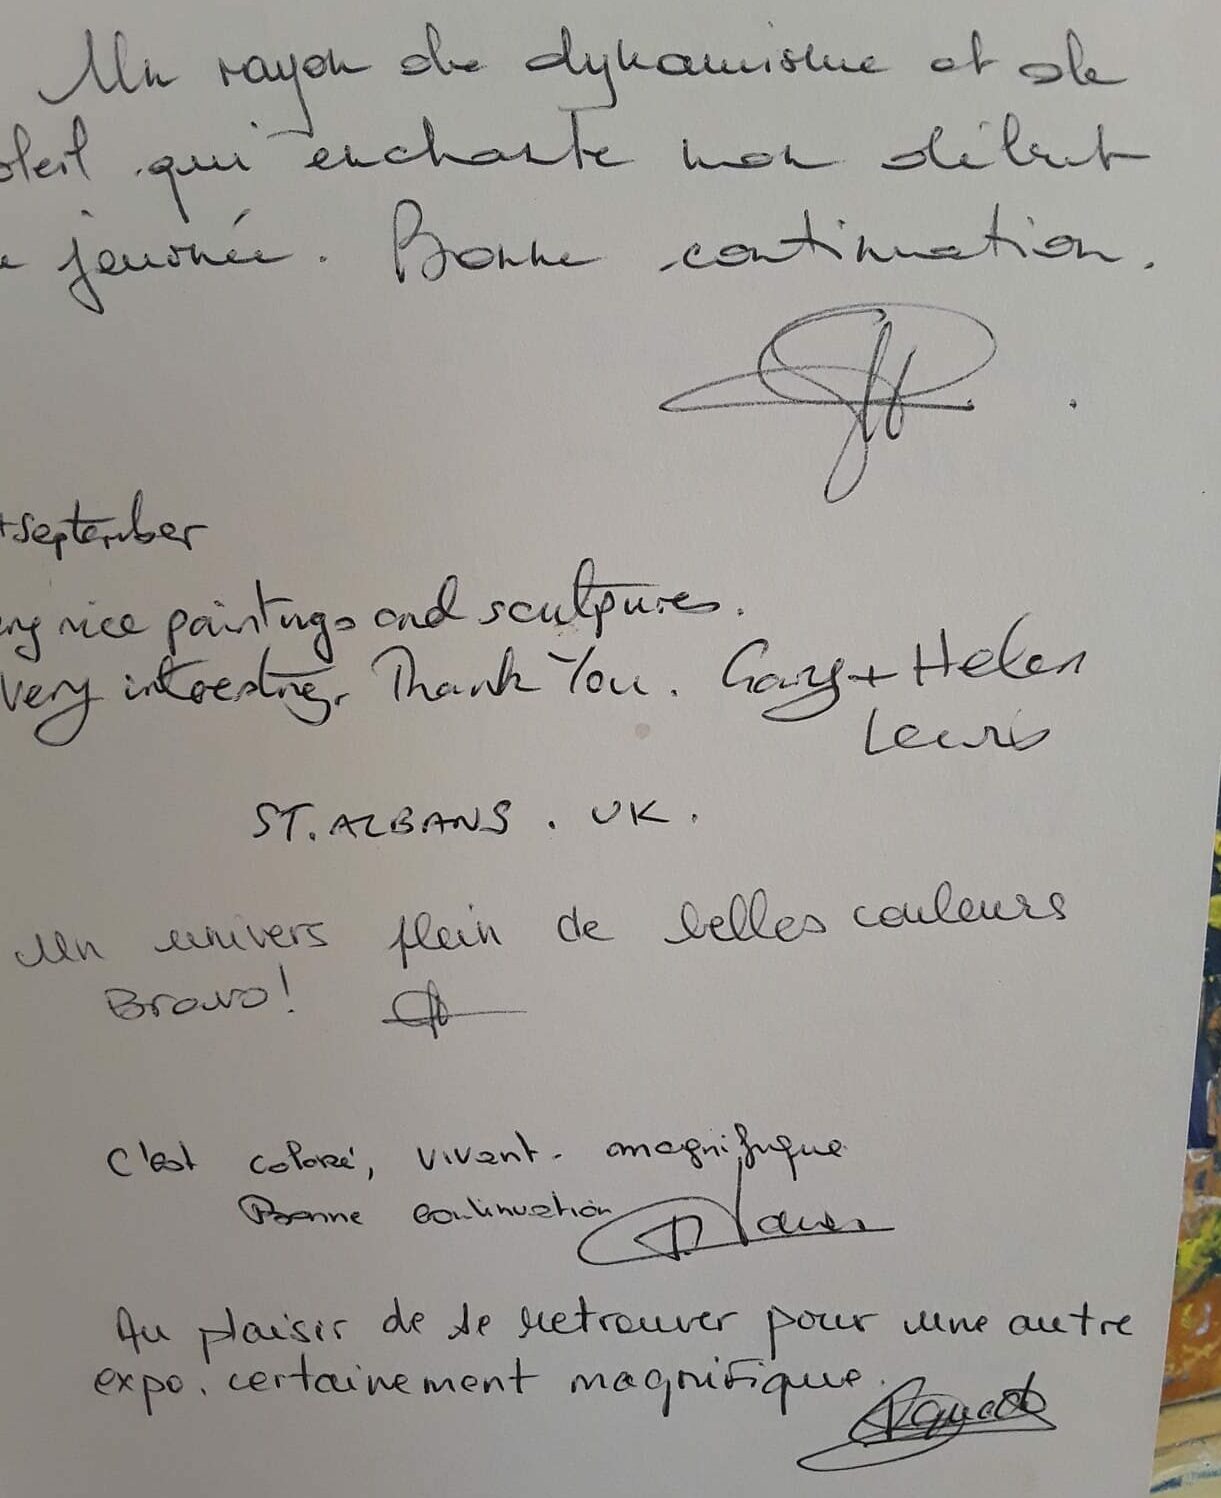 Un rayon de dynamisme et de
oleil qui enchante mon début
e journée. Bonne continuation.
september
ery nice paintings and sculptures.
very interesting. Thank You. Gary + Helen
Lewis
ST. ALBANS. UK.
Un univers plein de belles couleurs
Bravo!
C'est coloré, vivant. magnifique
Bonne continuation
Au plaisir de se retrouver pour une autre
expo. certainement magnifique.